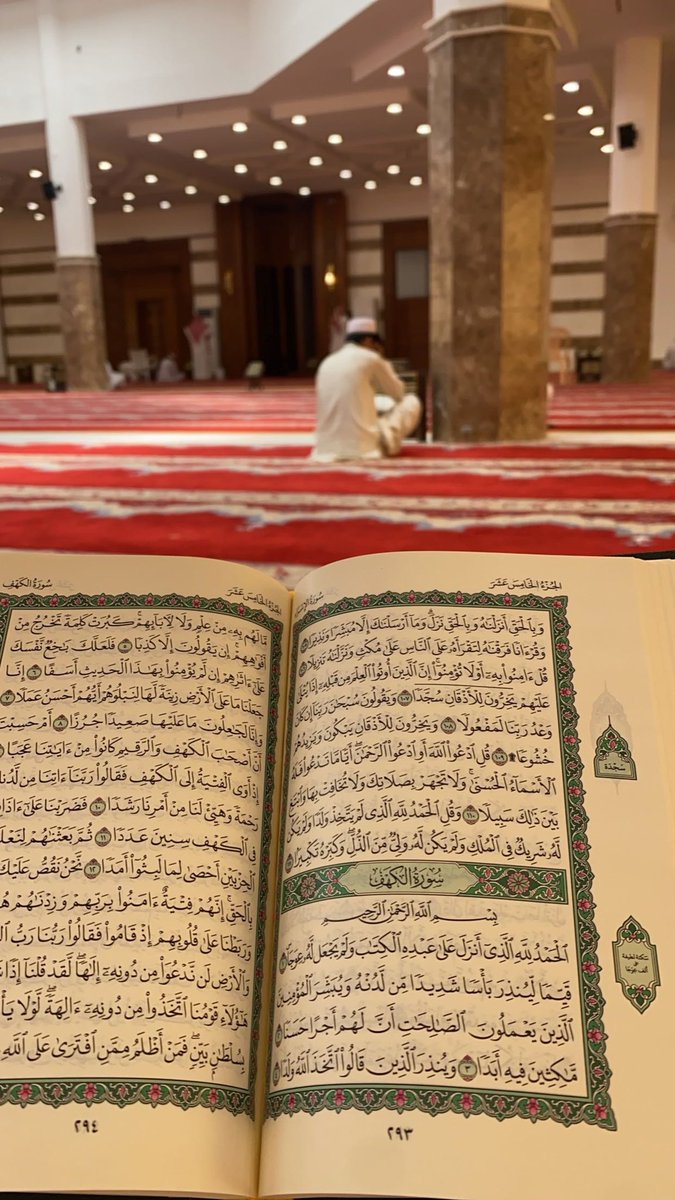 الجُزْءُ الخَامِسَ عَشَرَ
سُورَةُ الإِسْرَاءِ
وَبِٱلْحَقِّ أَنزَلْنَٰهُ وَبِٱلْحَقِّ نَزَلَ ۗ وَمَآ أَرْسَلْنَٰكَ إِلَّا مُبَشِّرًا وَنَذِيرًا ١٠٥
وَقُرْءَانًا فَرَقْنَٰهُ لِتَقْرَأَهُۥ عَلَى ٱلنَّاسِ عَلَىٰ مُكْثٍ وَنَزَّلْنَٰهُ تَنزِيلًا ١٠٦
قُلْ ءَامِنُوا۟ بِهِۦٓ أَوْ لَا تُؤْمِنُوٓا۟ ۚ إِنَّ ٱلَّذِينَ أُوتُوا۟ ٱلْعِلْمَ مِن قَبْلِهِۦٓ إِذَا يُتْلَىٰ
عَلَيْهِمْ يَخِرُّونَ لِلْأَذْقَانِ سُجَّدًا ١٠٧ وَيَقُولُونَ سُبْحَٰنَ رَبِّنَآ إِن كَانَ
وَعْدُ رَبِّنَا لَمَفْعُولًا ١٠٨ وَيَخِرُّونَ لِلْأَذْقَانِ يَبْكُونَ وَيَزِيدُهُمْ
خُشُوعًا ۩ ١٠٩ قُلِ ٱدْعُوا۟ ٱللَّهَ أَوِ ٱدْعُوا۟ ٱلرَّحْمَٰنَ ۖ أَيًّا مَّا تَدْعُوا۟ فَلَهُ
ٱلْأَسْمَآءُ ٱلْحُسْنَىٰ ۚ وَلَا تَجْهَرْ بِصَلَاتِكَ وَلَا تُخَافِتْ بِهَا وَٱبْتَغِ
بَيْنَ ذَٰلِكَ سَبِيلًا ١١٠ وَقُلِ ٱلْحَمْدُ لِلَّهِ ٱلَّذِى لَمْ يَتَّخِذْ وَلَدًا وَلَمْ يَكُن
لَّهُۥ شَرِيكٌ فِى ٱلْمُلْكِ وَلَمْ يَكُن لَّهُۥ وَلِىٌّ مِّنَ ٱلذُّلِّ ۖ وَكَبِّرْهُ تَكْبِيرًۢا ١١١
سُورَةُ الكَهْفِ
بِسْمِ ٱللَّهِ ٱلرَّحْمَٰنِ ٱلرَّحِيمِ
ٱلْحَمْدُ لِلَّهِ ٱلَّذِىٓ أَنزَلَ عَلَىٰ عَبْدِهِ ٱلْكِتَٰبَ وَلَمْ يَجْعَل لَّهُۥ عِوَجَا ۜ ١
قَيِّمًا لِّيُنذِرَ بَأْسًا شَدِيدًا مِّن لَّدُنْهُ وَيُبَشِّرَ ٱلْمُؤْمِنِينَ
ٱلَّذِينَ يَعْمَلُونَ ٱلصَّٰلِحَٰتِ أَنَّ لَهُمْ أَجْرًا حَسَنًا ٢
مَّٰكِثِينَ فِيهِ أَبَدًا ٣ وَيُنذِرَ ٱلَّذِينَ قَالُوا۟ ٱتَّخَذَ ٱللَّهُ وَلَدًا ٤
سَجْدَة
سكتة لطيفة
على
ألف عوجا
٢٩٣
الجُزْءُ الخَامِسَ عَشَرَ
سُورَةُ الكَهْفِ
لَهُم بِهِۦ مِنْ عِلْمٍ وَلَا لِءَابَآئِهِمْ ۚ كَبُرَتْ كَلِمَةً تَخْرُجُ مِنْ
أَفْوَٰهِهِمْ ۚ إِن يَقُولُونَ إِلَّا كَذِبًا ٥ فَلَعَلَّكَ بَٰخِعٌ نَّفْسَكَ
عَلَىٰٓ ءَاثَٰرِهِمْ إِن لَّمْ يُؤْمِنُوا۟ بِهَٰذَا ٱلْحَدِيثِ أَسَفًا ٦ إِنَّا
جَعَلْنَا مَا عَلَى ٱلْأَرْضِ زِينَةً لَّهَا لِنَبْلُوَهُمْ أَيُّهُمْ أَحْسَنُ عَمَلًا ٧
وَإِنَّا لَجَٰعِلُونَ مَا عَلَيْهَا صَعِيدًا جُرُزًا ٨ أَمْ حَسِبْتَ
أَنَّ أَصْحَٰبَ ٱلْكَهْفِ وَٱلرَّقِيمِ كَانُوا۟ مِنْ ءَايَٰتِنَا عَجَبًا
إِذْ أَوَى ٱلْفِتْيَةُ إِلَى ٱلْكَهْفِ فَقَالُوا۟ رَبَّنَآ ءَاتِنَا مِن
رَحْمَةً وَهَيِّئْ لَنَا مِنْ أَمْرِنَا رَشَدًا ١٠ فَضَرَبْنَا عَلَىٰٓ
فِى ٱلْكَهْفِ سِنِينَ عَدَدًا ١١ ثُمَّ بَعَثْنَٰهُمْ
ٱلْحِزْبَيْنِ أَحْصَىٰ لِمَا لَبِثُوٓا۟ أَمَدًا ١٢ نَّحْنُ نَقُصُّ عَلَيْكَ
بِٱلْحَقِّ ۚ إِنَّهُمْ فِتْيَةٌ ءَامَنُوا۟ بِرَبِّهِمْ وَزِدْنَٰهُمْ
وَرَبَطْنَا عَلَىٰ قُلُوبِهِمْ إِذْ قَامُوا۟ فَقَالُوا۟ رَبُّنَا رَبُّ
وَٱلْأَرْضِ لَن نَّدْعُوَا۟ مِن دُونِهِۦٓ إِلَٰهًا ۖ لَّقَدْ قُلْنَآ إِذًا
هَٰٓؤُلَآءِ قَوْمُنَا ٱتَّخَذُوا۟ مِن دُونِهِۦٓ ءَالِهَةً ۖ لَّوْلَا
بِسُلْطَٰنٍۭ بَيِّنٍ ۖ فَمَنْ أَظْلَمُ مِمَّنِ ٱفْتَرَىٰ عَلَى ٱللَّهِ
٢٩٤